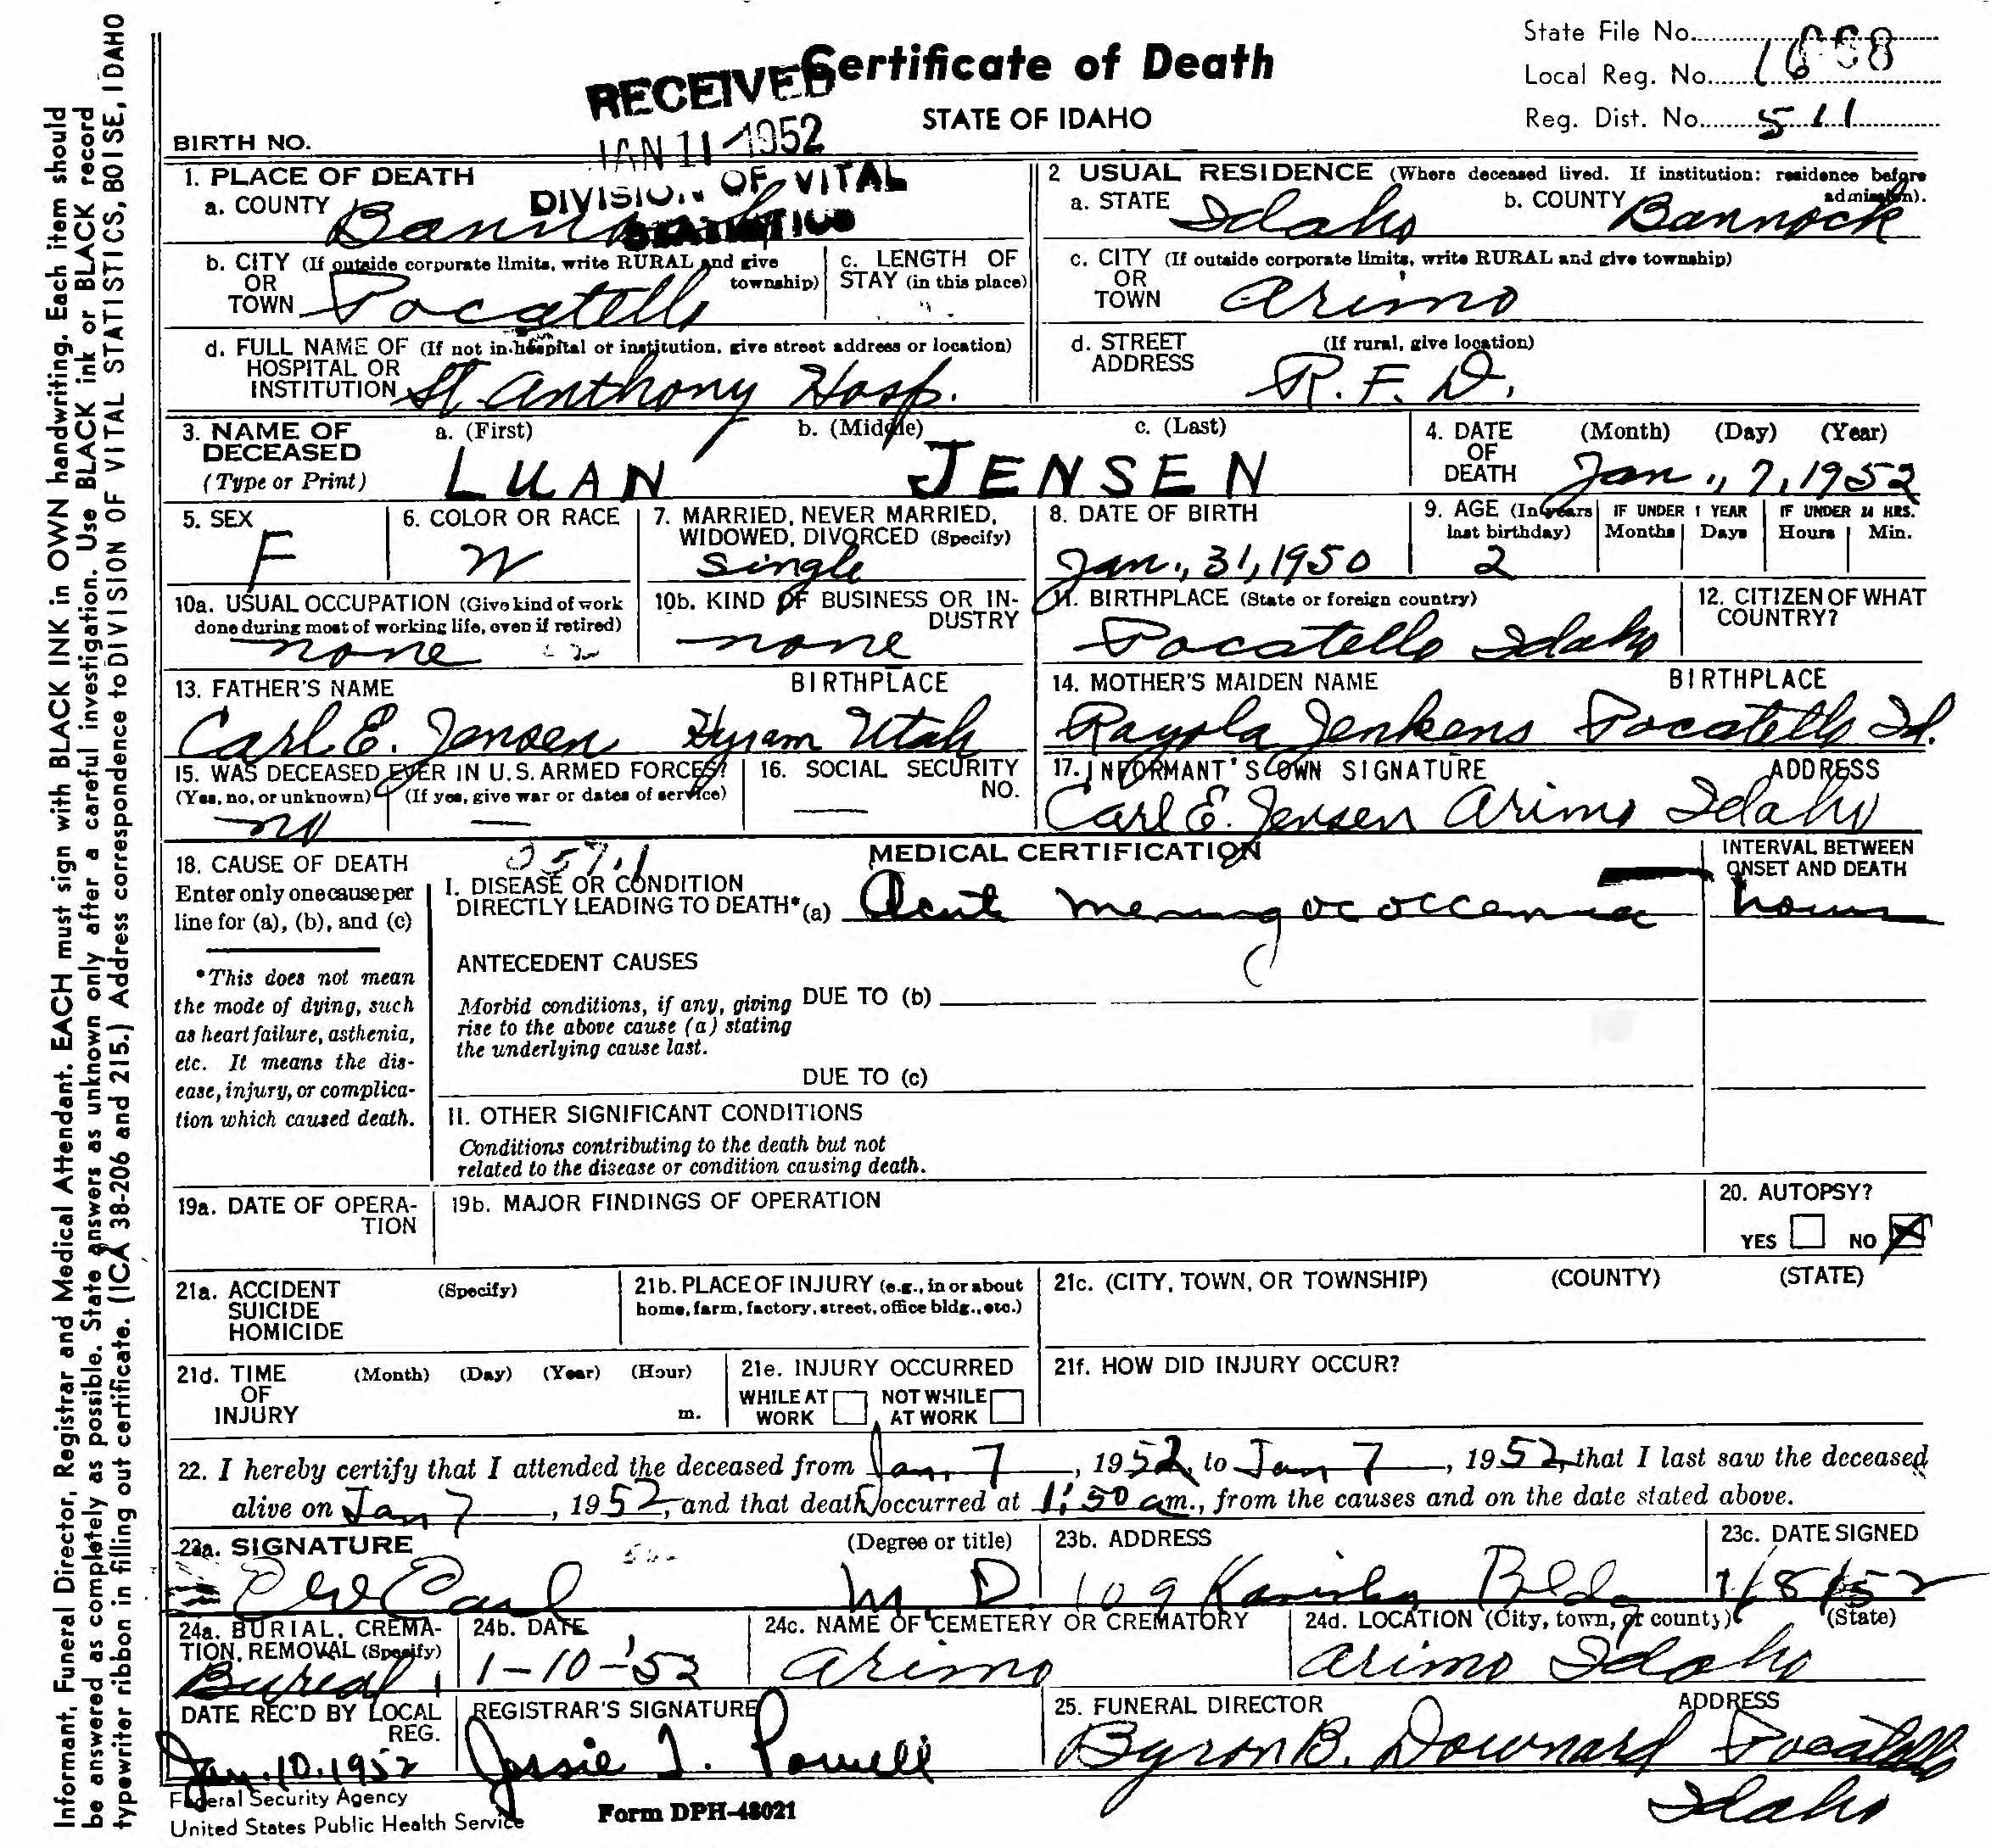 Informant, Funeral Director, Registrar and Medical Attendant. EACH must sign with BLACK INK in OWN handwriting. Each item should
be answered as completely as possible. State answers as unknown only after a careful investigation. Use BLACK ink or BLACK record
typewriter ribbon in filling out certificate. (ICA 38-206 and 215.) Address correspondence to DIVISION OF VITAL STATISTICS, BOISE, IDAHO
State File No.
Certificate of Death
Local Reg. No. 16
RECEIVED
STATE OF IDAHO
Reg. Dist. No. 511
BIRTH NO.
JAN 11 1952
DIVISION OF VITAL
STATISTICS
1. PLACE OF DEATH
a. COUNTY Bannock
2 USUAL RESIDENCE (Where deceased lived. If institution: residence before admission).
a. STATE Idaho b. COUNTY Bannock
b. CITY (If outside corporate limits, write RURAL and give township)
OR
TOWN Pocatello
c. LENGTH OF
STAY (in this place)
c. CITY (If outside corporate limits, write RURAL and give township)
OR
TOWN Arimo
d. FULL NAME OF (If not in hospital or institution, give street address or location)
HOSPITAL OR
INSTITUTION St Anthony Hosp.
d. STREET (If rural, give location)
ADDRESS R.F.D.
3. NAME OF a. (First) b. (Middle) c. (Last)
DECEASED
(Type or Print) LUAN JENSEN
4. DATE (Month) (Day) (Year)
OF
DEATH Jan., 7, 1952
5. SEX
F
6. COLOR OR RACE
W
7. MARRIED, NEVER MARRIED,
WIDOWED, DIVORCED (Specify)
Single
8. DATE OF BIRTH
Jan., 31, 1950
9. AGE (In years last birthday)
2
IF UNDER 1 YEAR
Months Days
IF UNDER 24 HRS.
Hours Min.
10a. USUAL OCCUPATION (Give kind of work
done during most of working life, even if retired)
none
10b. KIND OF BUSINESS OR INDUSTRY
none
11. BIRTHPLACE (State or foreign country)
Pocatello Idaho
12. CITIZEN OF WHAT
COUNTRY?
13. FATHER'S NAME BIRTHPLACE
Carl E. Jensen Hyram Utah
14. MOTHER'S MAIDEN NAME BIRTHPLACE
Rayola Jenkens Pocatello Id.
15. WAS DECEASED EVER IN U.S. ARMED FORCES?
(Yes, no, or unknown) (If yes, give war or dates of service)
no —
16. SOCIAL SECURITY
NO.
—
17. INFORMANT'S OWN SIGNATURE ADDRESS
Carl E. Jensen Arimo Idaho
18. CAUSE OF DEATH
Enter only one cause per
line for (a), (b), and (c)
*This does not mean
the mode of dying, such
as heart failure, asthenia,
etc. It means the dis-
ease, injury, or complica-
tion which caused death.
MEDICAL CERTIFICATION
INTERVAL BETWEEN
ONSET AND DEATH
I. DISEASE OR CONDITION
DIRECTLY LEADING TO DEATH* (a) Acute meningococcemia hours
ANTECEDENT CAUSES
Morbid conditions, if any, giving
rise to the above cause (a) stating
the underlying cause last.
DUE TO (b)
DUE TO (c)
II. OTHER SIGNIFICANT CONDITIONS
Conditions contributing to the death but not
related to the disease or condition causing death.
19a. DATE OF OPERA-
TION
19b. MAJOR FINDINGS OF OPERATION
20. AUTOPSY?
YES NO X
21a. ACCIDENT (Specify)
SUICIDE
HOMICIDE
21b. PLACE OF INJURY (e.g., in or about
home, farm, factory, street, office bldg., etc.)
21c. (CITY, TOWN, OR TOWNSHIP) (COUNTY) (STATE)
21d. TIME (Month) (Day) (Year) (Hour)
OF
INJURY m.
21e. INJURY OCCURRED
WHILE AT WORK NOT WHILE AT WORK
21f. HOW DID INJURY OCCUR?
22. I hereby certify that I attended the deceased from Jan. 7, 1952, to Jan 7, 1952, that I last saw the deceased
alive on Jan 7, 1952, and that death occurred at 1:50 am., from the causes and on the date stated above.
23a. SIGNATURE (Degree or title)
Carl M D.
23b. ADDRESS
109 Bldg
23c. DATE SIGNED
1/8/52
24a. BURIAL, CREMA-
TION, REMOVAL (Specify)
Bureal
24b. DATE
1-10-'52
24c. NAME OF CEMETERY OR CREMATORY
Arimo
24d. LOCATION (City, town, or county) (State)
Arimo Idaho
DATE REC'D BY LOCAL
REG.
Jan. 10. 1952
REGISTRAR'S SIGNATURE
Jessie I. Powell
25. FUNERAL DIRECTOR ADDRESS
Byron B. Downard Pocatello
Idaho
Federal Security Agency
United States Public Health Service
Form DPH-48021